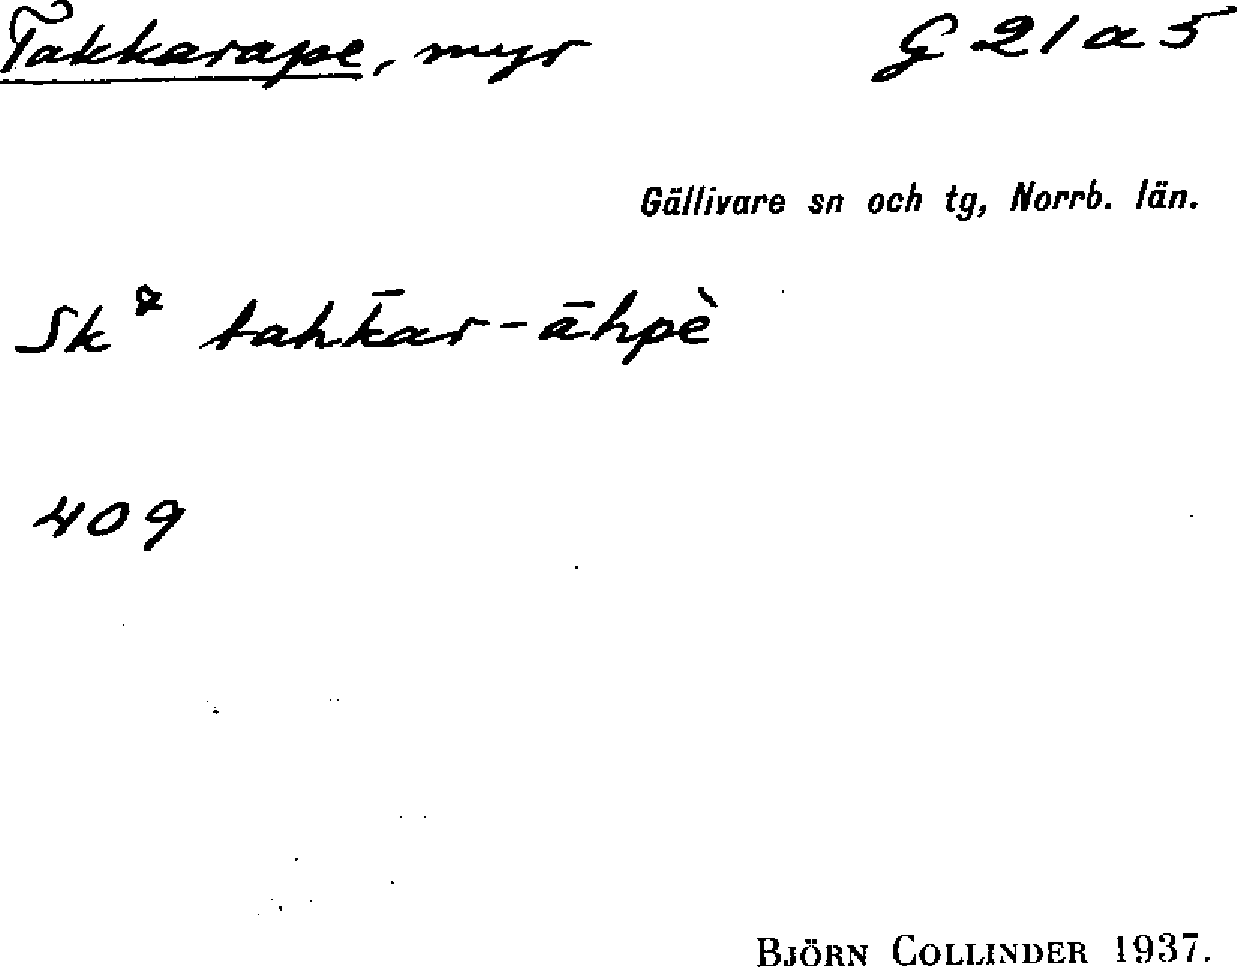 Takkarape, myr G 21 a 5
Gällivare sn och tg, Norrb. län.
Sk tahk̄ar-āhpè
409
BJÖRN COLLINDER 1937.